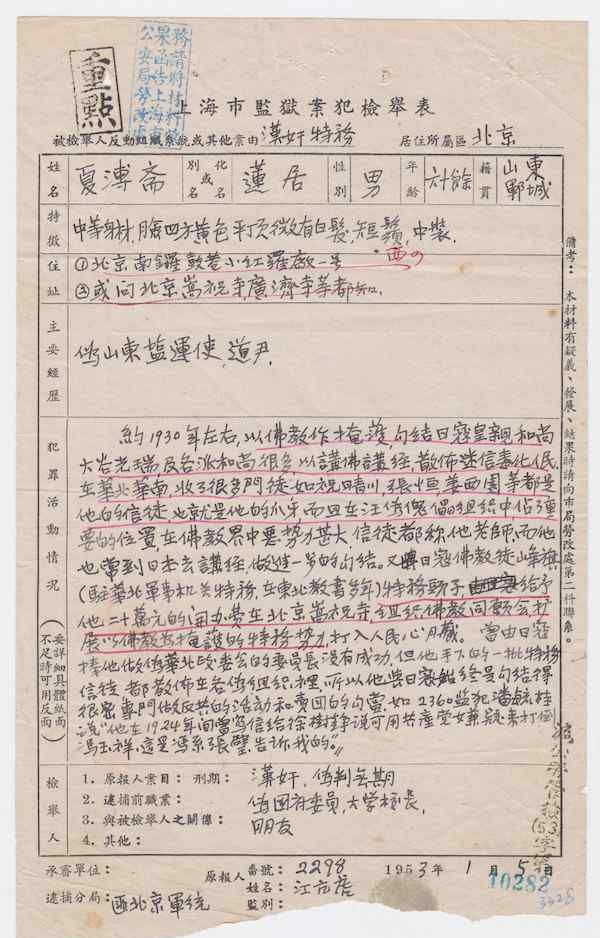 重點
務請將打
果函告上海
公安局勞改
上海市監獄案犯檢舉表
被檢舉人反動組織系統或其他案由 漢奸特務 居住所屬區 北京
姓名 夏溥斋 別名或化名 蓮居 性別 男 年齡 六十餘 籍貫 山東鄆城
特徵 中等身材,月臉四方黃色平頂微有白髮,短鬚,中裝.
住址 ①北京南鑼鼓巷小紅羅廠一号
②或问北京嵩祝寺廣濟寺等都知.
主要經歷 偽山東塩運使,道尹,
犯罪活動情況(要詳細具體紙面不足時可用反面)
約1930年左右,以佛教作掩護,勾结日寇皇親和尚
大谷光瑞,及各派和尚很多,以講佛講經,散佈迷信毒化人民,
在華北華南,收了很多門徒如祝晴川,張恒,姜西園等都是
他的信徒,也就是他的爪牙而且在汪偽傀儡组纴中佔強
要的位置,在佛教界中要势力甚大信徒都称他老師,而他
也常到日本去講經,做進一步的勾结。又與日寇佛教徒山峯旗
(駐華北軍事机关特務,在東北教書多年)特務頭子 给予
他二十萬元的開办费在北京嵩祝寺,组织佛教同願会,扩
展以佛教為掩護的特務势力打入人民心月藏。當由日寇
捧他做偽華北政委会的委員長没有成功,但他手下的一批特務
信徒都散佈在各偽组织裡,所以他與日寇始终是勾结得
很密專門做反共的活动和賣国的勾當,如2360監犯潘毓桂
说"他在1924年间當寫信给徐樹錚说可用共産党女蒹
馮玉祥,這是馮系張璧告诉我的。"
檢舉人
1. 原報人案目: 刑期: 漢奸,偽判無期
2. 逮捕前職業: 偽国府委員,大学校長,
3. 與被檢舉人之關係: 朋友
4. 其他:
承審單位:
逮捕分局: 匪北京軍统
原報人 番號: 2298
姓名: 江亢虎
監別:
1953年1月5日
10282
3328
備考: 本材料有疑義、發展、結果時請向市局勞改處第二科聯系。